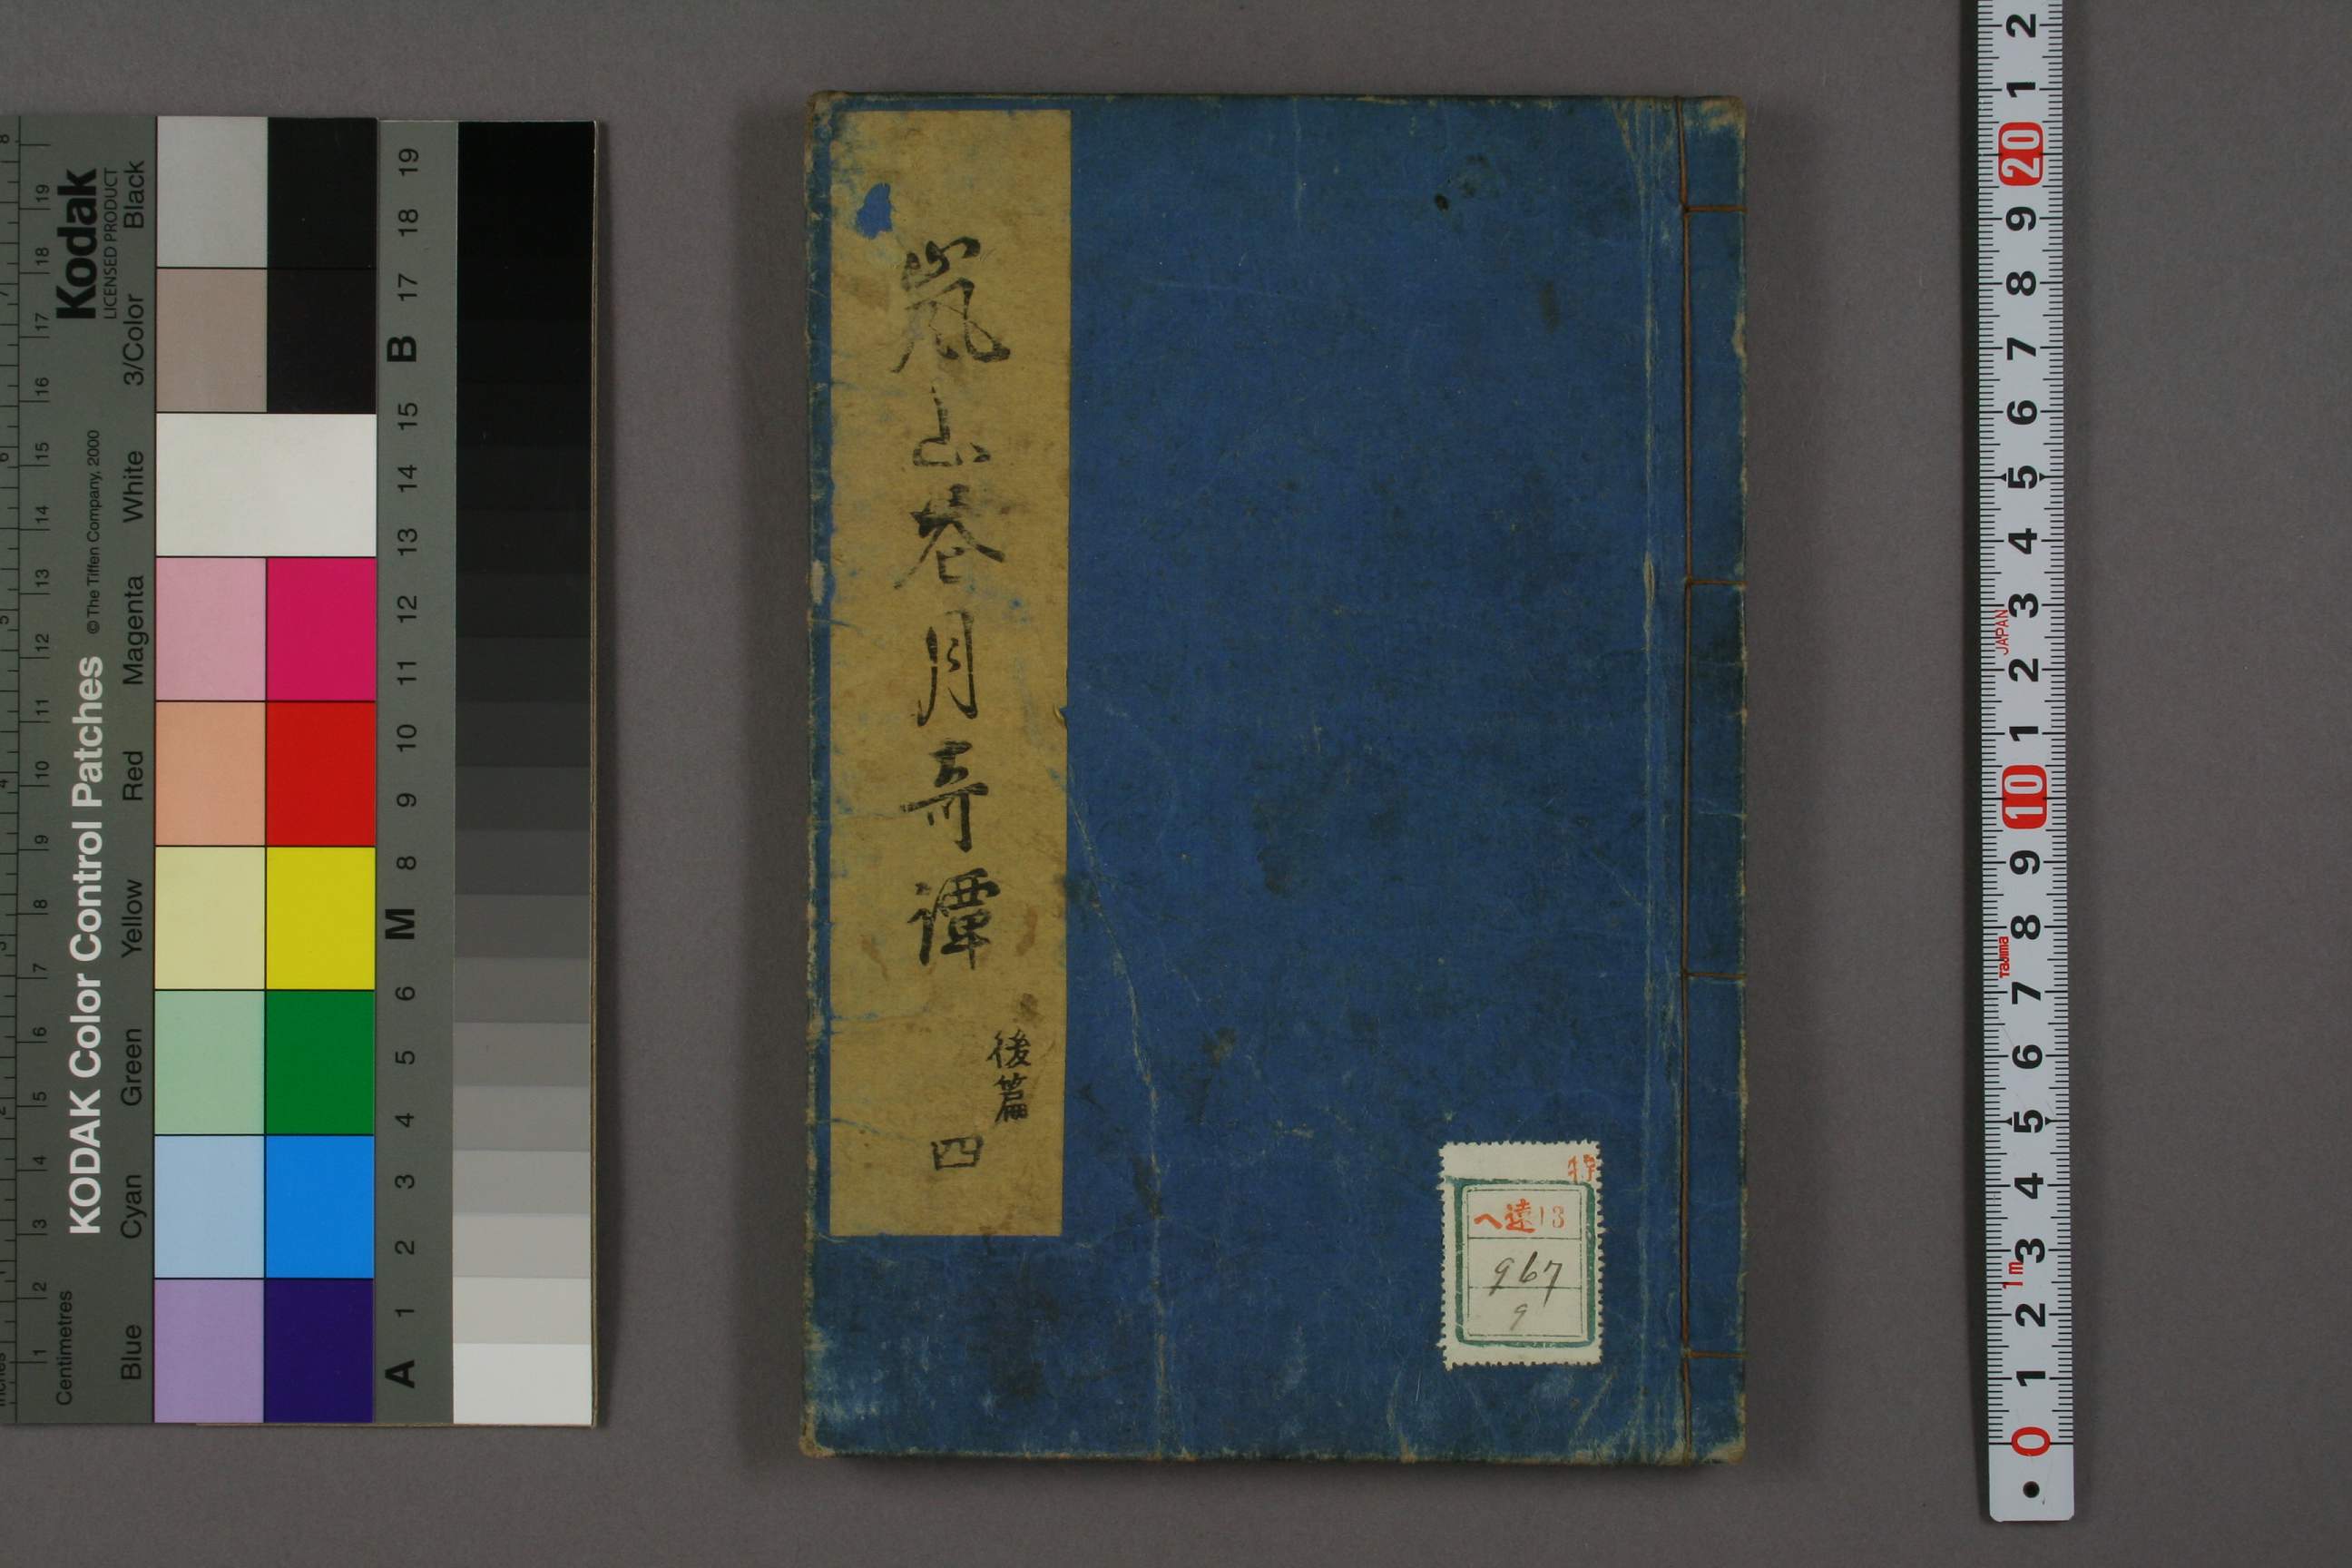 嵐山春月奇譚
後篇
四
特
へ遠13
967
9
Kodak
LICENSED PRODUCT
KODAK Color Control Patches
© The Tiffen Company, 2000
Centimetres
Inches
Blue Cyan Green Yellow Red Magenta White 3/Color Black
1 2 3 4 5 6 7 8 9 10 11 12 13 14 15 16 17 18 19
A 1 2 3 4 5 6 M 8 9 10 11 12 13 14 15 B 17 18 19
0 1 2 3 4 5 6 7 8 9 10 1 2 3 4 5 6 7 8 9 20 1 2
1m
Tajima
JAPAN